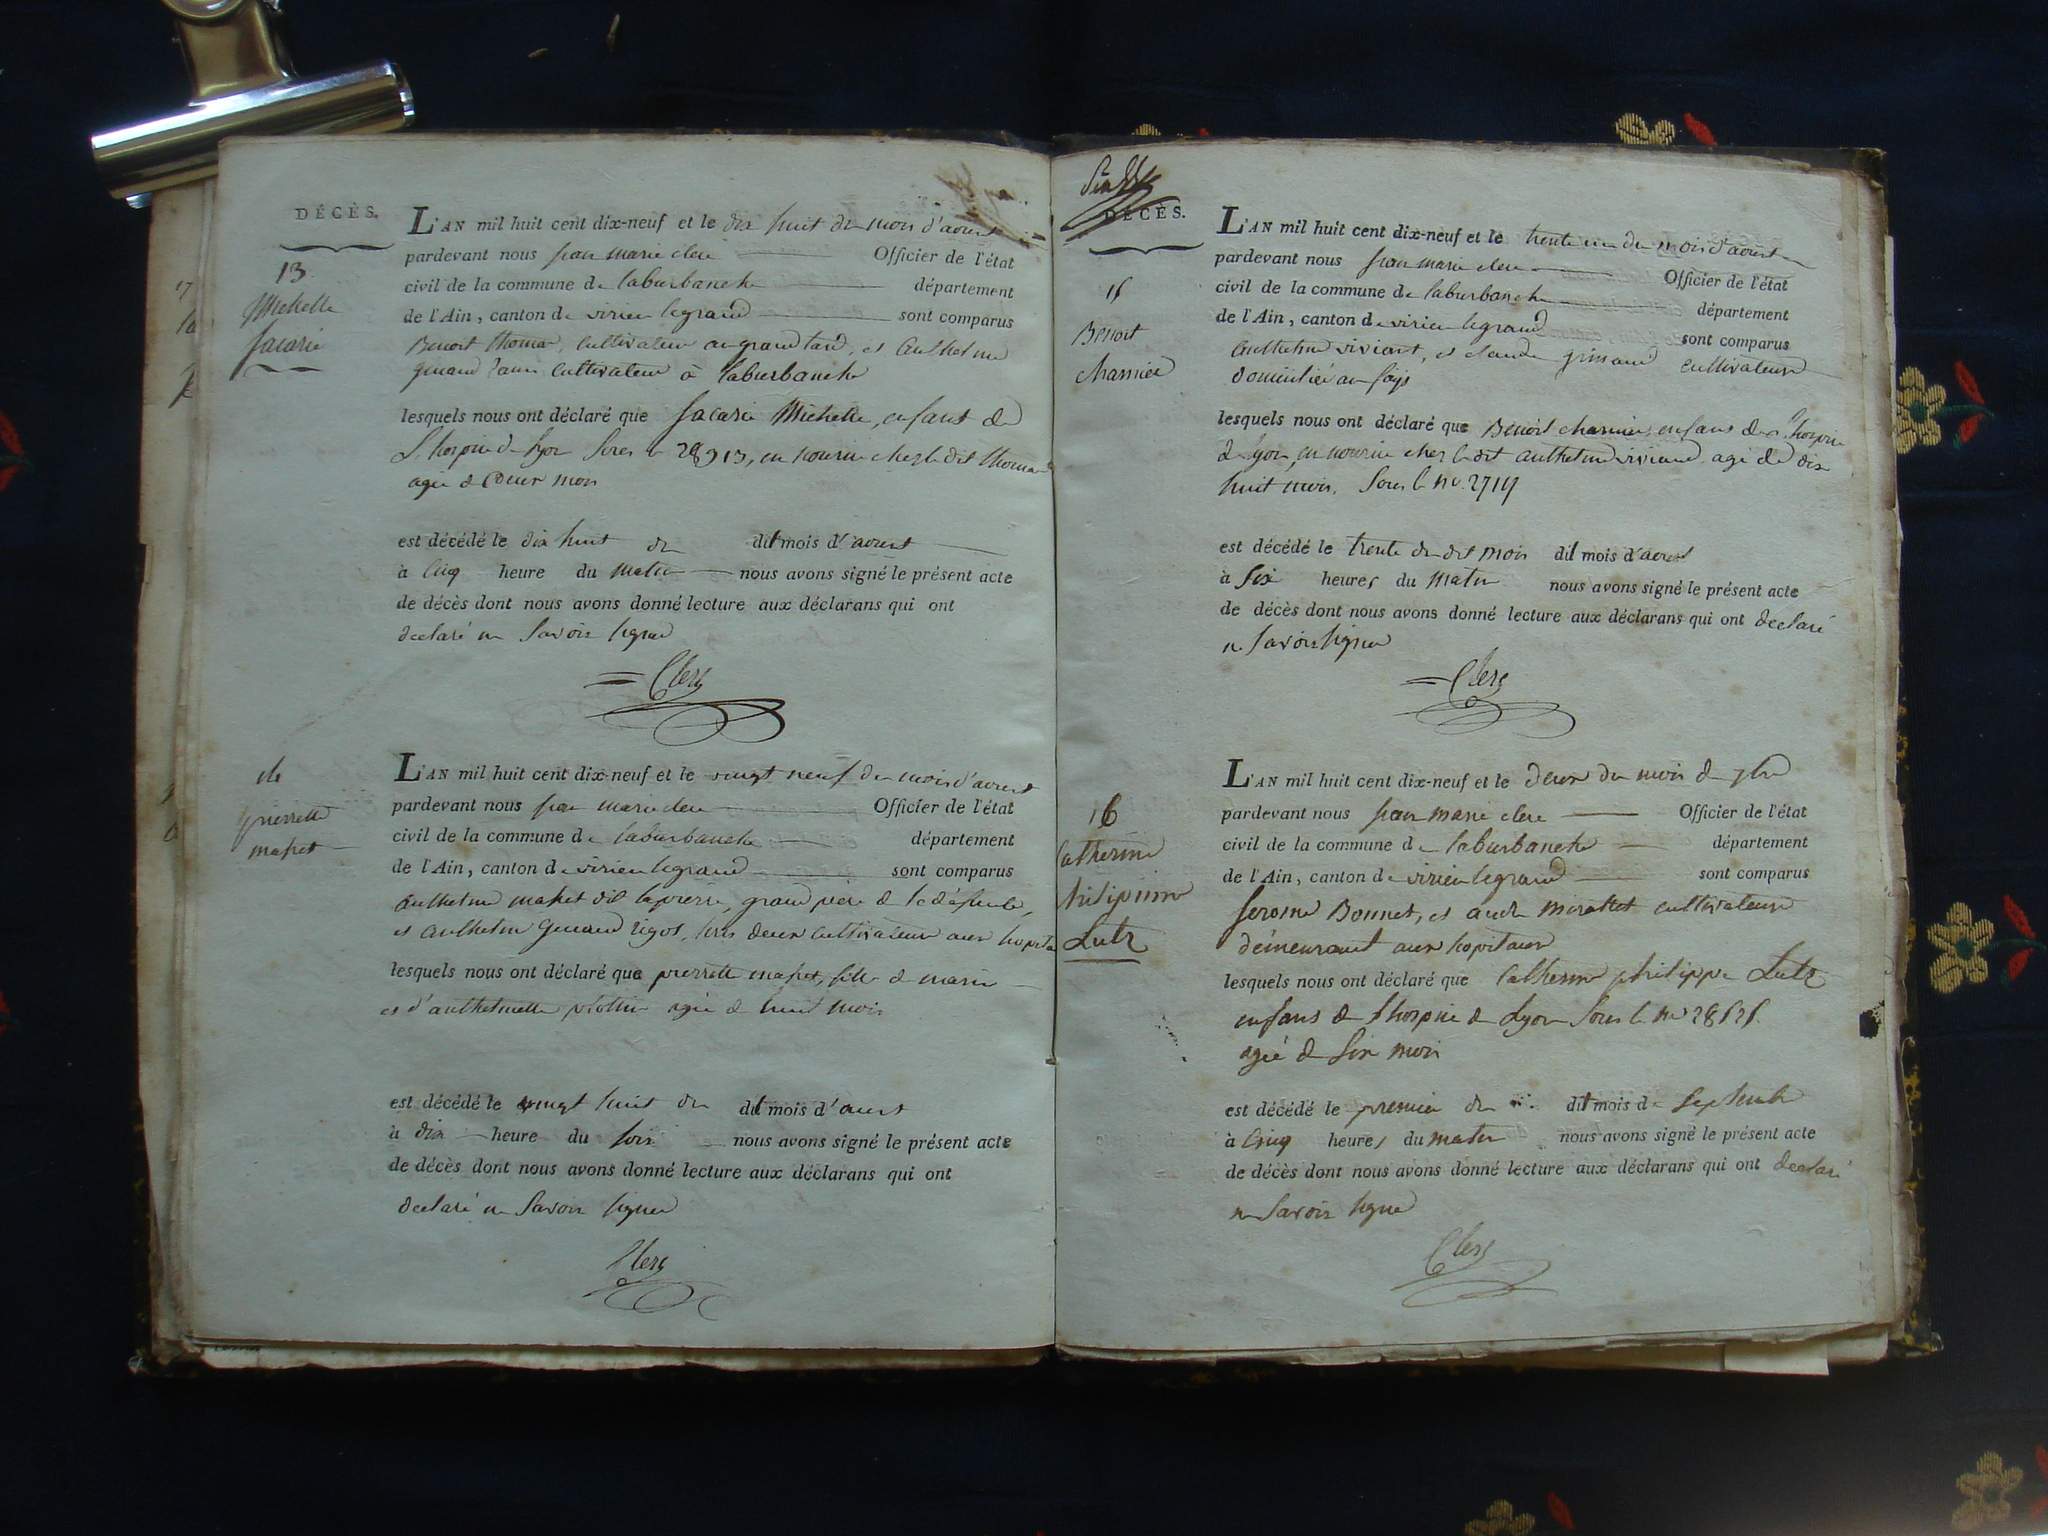 DÉCÈS.
13
Michelle
Jacarie
L'AN mil huit cent dix-neuf et le dix huit du mois d'aoust
pardevant nous jean marie clerc Officier de l'état
civil de la commune de laburbanche département
de l'Ain, canton de virieu legrand sont comparus
Benoit thomas, cultivateur au grand tard, et Anthelme
cultivateur à laburbanche
lesquels nous ont déclaré que Jacarie Michelle, enfant de
L'hospice de lyon sous le 28913, en nourrie chez le dit thomas
agée de Deux mois
est décédé le dix huit du dit mois d'aoust
à cinq heure du matin nous avons signé le présent acte
de décès dont nous avons donné lecture aux déclarans qui ont
declaré ne Savoir signer
Clerc
14
pierrette
L'AN mil huit cent dix-neuf et le vingt neuf du mois d'aoust
pardevant nous jean marie clerc Officier de l'état
civil de la commune de laburbanche département
de l'Ain, canton de virieu legrand sont comparus
anthelme dit lapierre, grand père de la défunte,
et anthelme tous deux cultivateurs aux hopitaux
lesquels nous ont déclaré que pierrette fille de marin
et d'anthelmette agée de huit mois
est décédé le vingt huit du dit mois d'aoust
à dix heure du soir nous avons signé le présent acte
de décès dont nous avons donné lecture aux déclarans qui ont
declaré ne Savoir signer
Clerc
DÉCÈS.
15
Benoit
charmier
L'AN mil huit cent dix-neuf et le trente un du mois d'aoust
pardevant nous jean marie clerc Officier de l'état
civil de la commune de laburbanche département
de l'Ain, canton de virieu legrand sont comparus
anthelme viviant, et claude cultivateurs
domiciliés au fays
lesquels nous ont déclaré que Benoit charmier, enfans de l'hospice
de Lyon, en nourrie chez le dit anthelme viviand agé de dix
huit mois. Sous le no. 2719
est décédé le trente du dit mois dit mois d'aoust
à six heures du matin nous avons signé le présent acte
de décès dont nous avons donné lecture aux déclarans qui ont declaré
ne savoir signer
Clerc
16
catherine
philippine
Lutz
L'AN mil huit cent dix-neuf et le deux du mois de 7bre
pardevant nous jean marie clerc Officier de l'état
civil de la commune de laburbanche département
de l'Ain, canton de virieu legrand sont comparus
Jerome Bonnet, et cultivateurs
demeurant aux hopitaux
lesquels nous ont déclaré que catherine philippe Lutz
enfans de l'hospice de Lyon sous le no
agée de six mois
est décédé le premier du dit mois de septembre
à cinq heures du matin nous avons signé le présent acte
de décès dont nous avons donné lecture aux déclarans qui ont declaré
ne savoir signer
Clerc